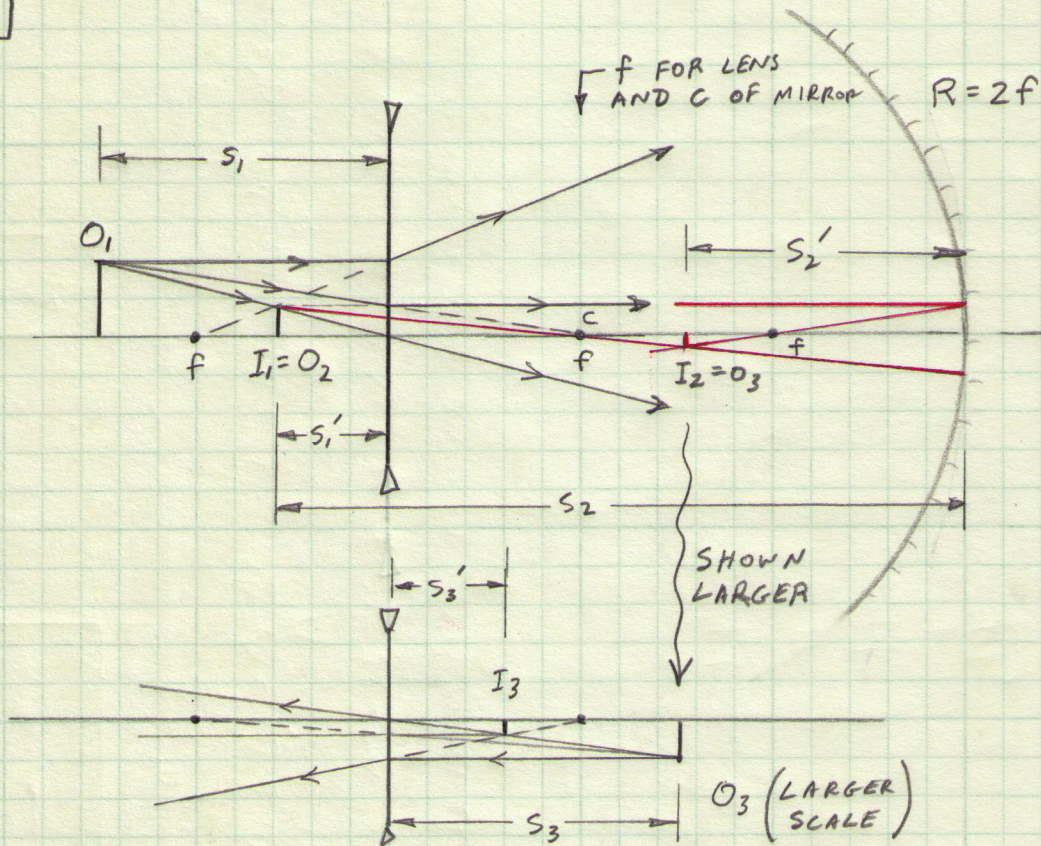 f FOR LENS
AND C OF MIRROR
R = 2f
S₁
O₁
S₂'
C
f
I₁=O₂
f
I₂=O₃
f
S₁'
S₂
SHOWN
LARGER
S₃'
I₃
O₃ (LARGER
SCALE)
S₃